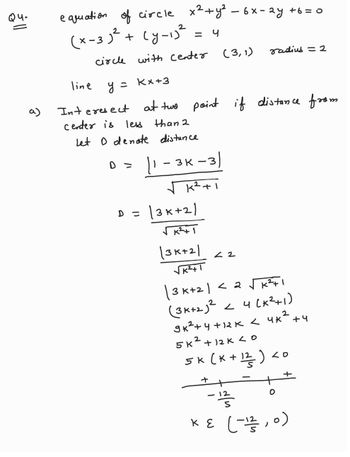 Q4. equation of circle x²+y² - 6x - 2y + 6 = 0
(x-3)² + (y-1)² = 4
circle with center (3,1) radius = 2
line y = Kx+3
a) Interesect at two point if distance from
center is less than 2
let D denote distance
D = |1 - 3K - 3| / √(K²+1)
D = |3K+2| / √(K²+1)
|3K+2| / √(K²+1) < 2
|3K+2| < 2 √(K²+1)
(3K+2)² < 4(K²+1)
9K²+4+12K < 4K²+4
5K²+12K < 0
5K (K + 12/5) < 0
+ - +
-12/5 0
K ε (-12/5, 0)